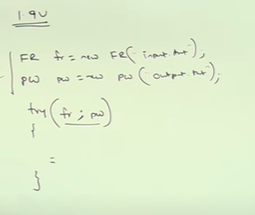 1.9V
FR fr = new FR("input.txt");
PW pw = new PW("output.txt");
try(fr; pw)
{
=
}